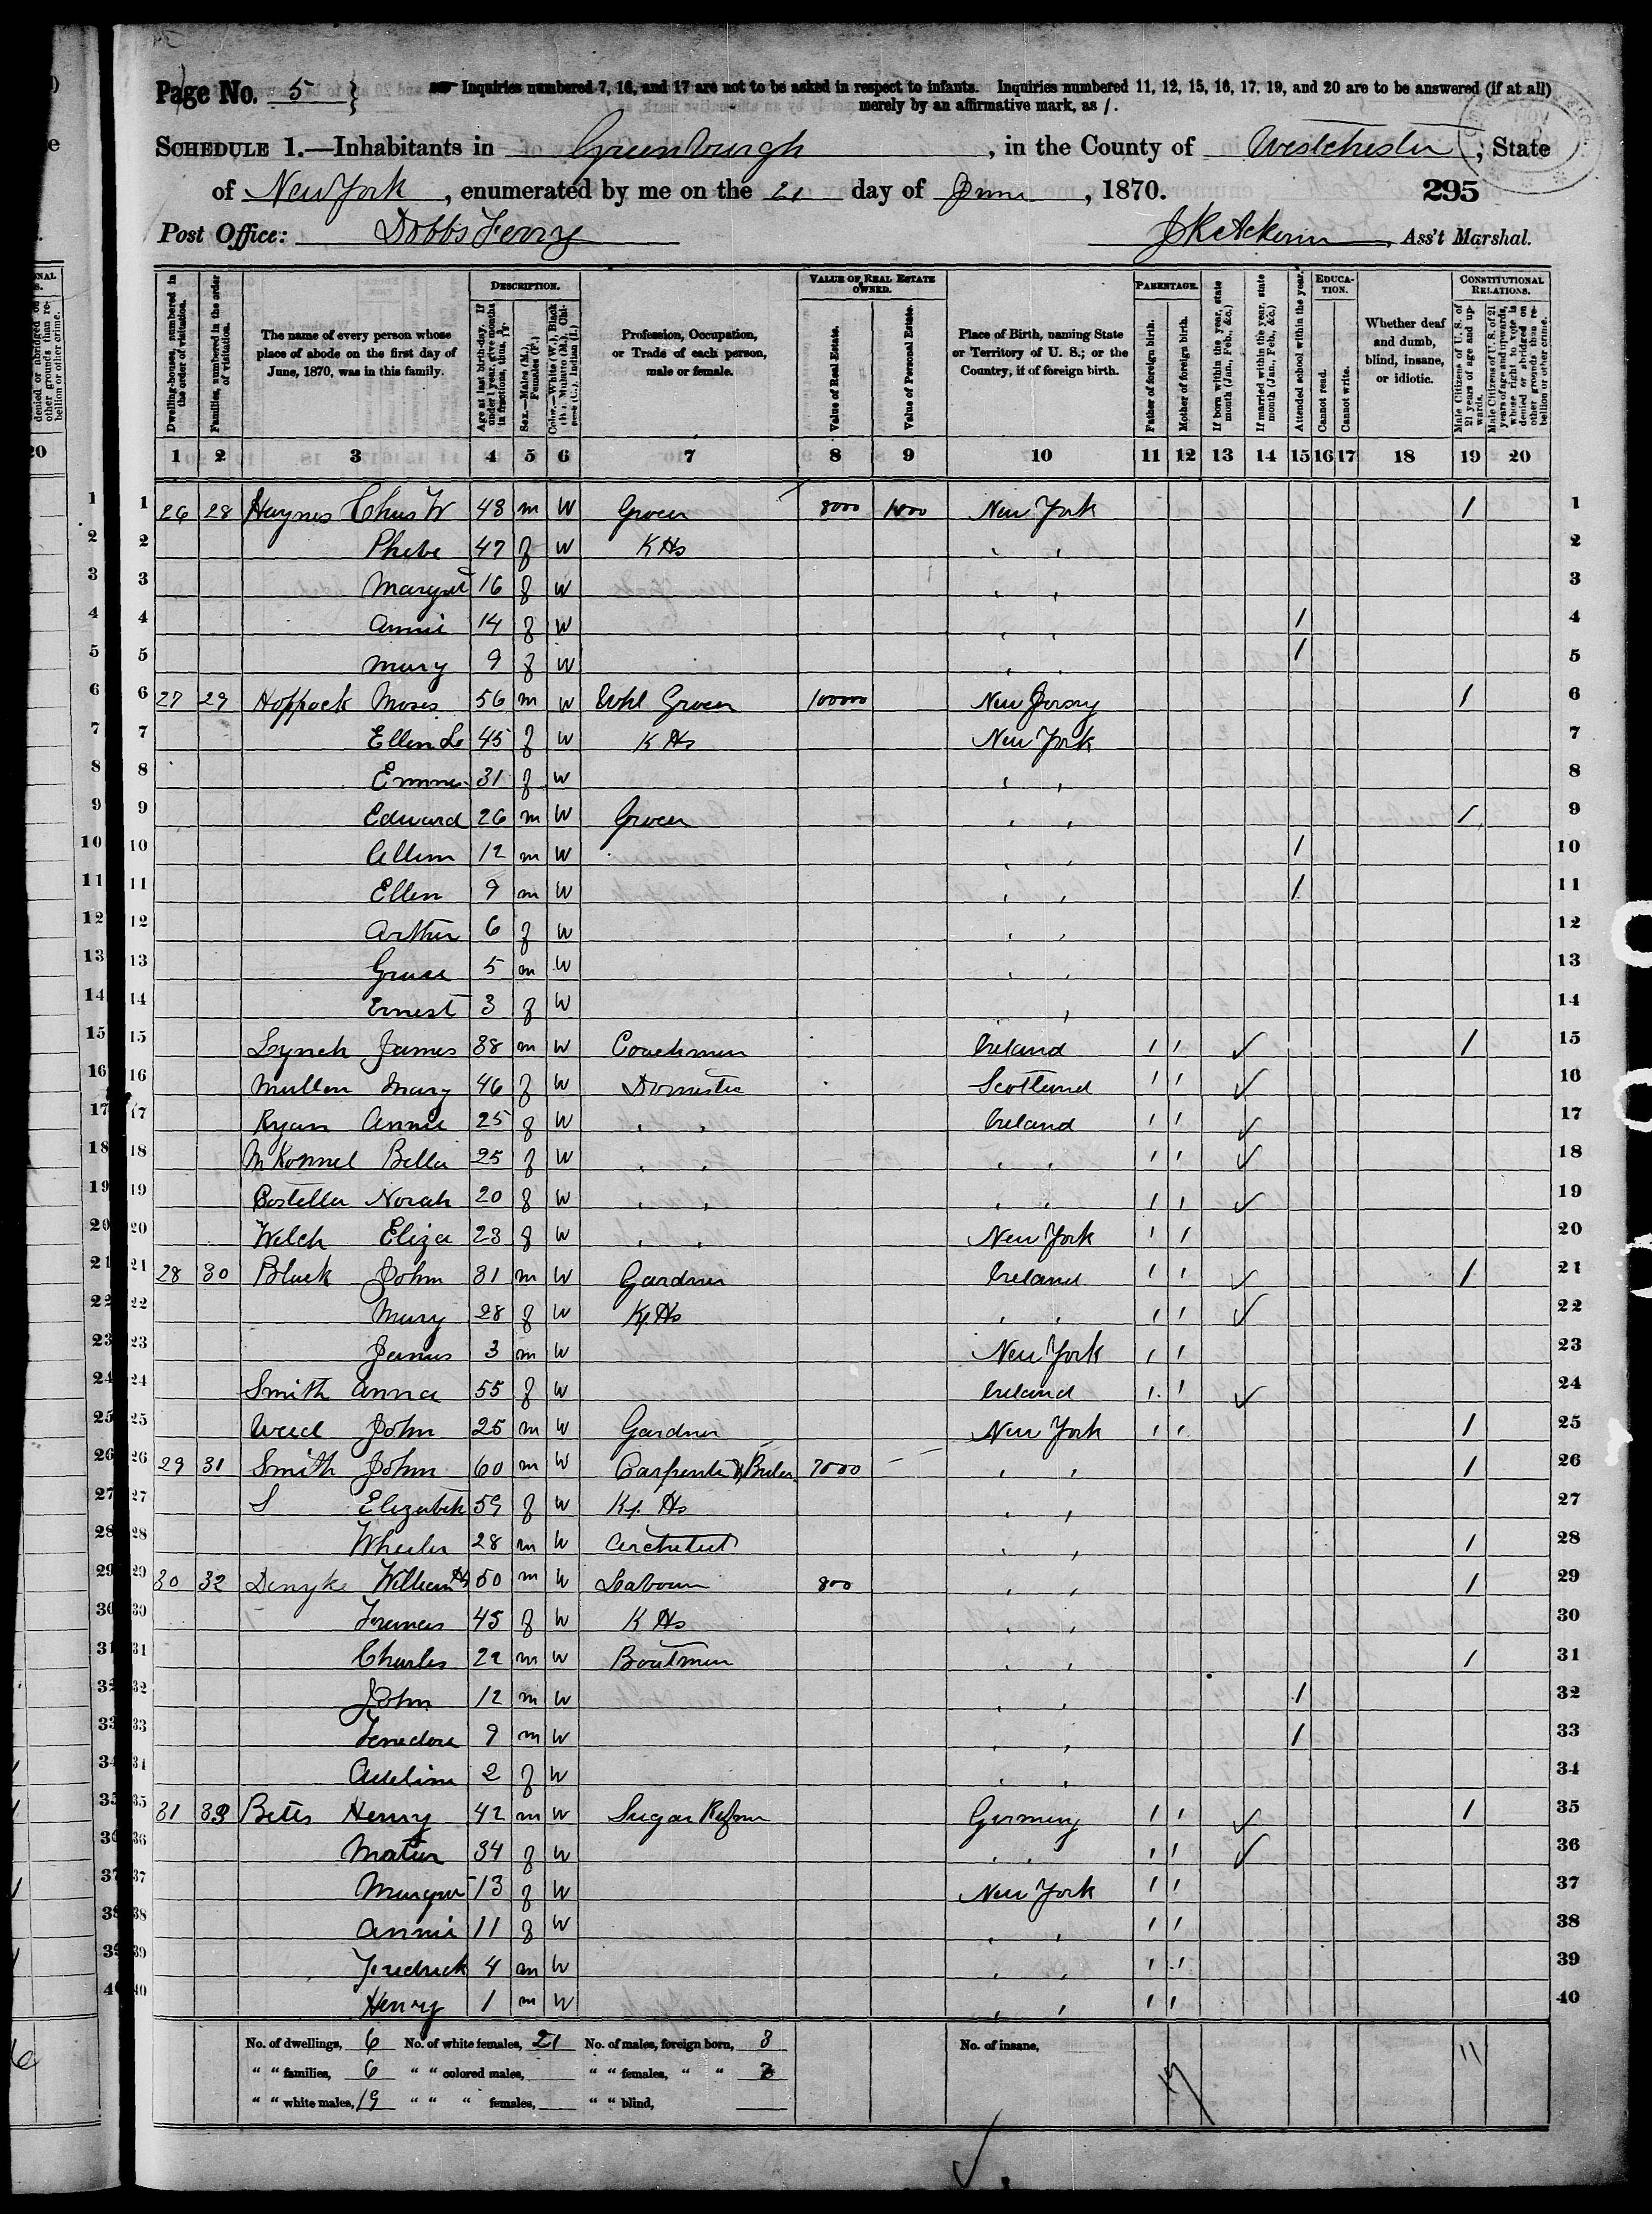 Page No. 5 } Inquiries numbered 7, 16, and 17 are not to be asked in respect to infants. Inquiries numbered 11, 12, 15, 16, 17, 19, and 20 are to be answered (if at all)
merely by an affirmative mark, as /.
SCHEDULE 1.—Inhabitants in Greenburgh, in the County of Westchester, State
of New York, enumerated by me on the 21 day of June, 1870. 295
Post Office: Dobbs Ferry Ass't Marshal.
DESCRIPTION. VALUE OF REAL ESTATE OWNED. PARENTAGE. EDUCATION. CONSTITUTIONAL RELATIONS.
Dwelling-houses, numbered in the order of visitation.
Families, numbered in the order of visitation.
The name of every person whose place of abode on the first day of June, 1870, was in this family.
Age at last birth-day. If under 1 year, give months in fractions, thus,
Sex.—Males (M.), Females (F.)
Color.—White (W.), Black (B.), Mulatto (M.), Chinese (C.), Indian (I.)
Profession, Occupation, or Trade of each person, male or female.
Value of Real Estate.
Value of Personal Estate.
Place of Birth, naming State or Territory of U. S.; or the Country, if of foreign birth.
Father of foreign birth.
Mother of foreign birth.
If born within the year, state month (Jan., Feb., &c.)
If married within the year, state month (Jan., Feb., &c.)
Attended school within the year.
Cannot read.
Cannot write.
Whether deaf and dumb, blind, insane, or idiotic.
Male Citizens of U. S. of 21 years of age and upwards.
Male Citizens of U. S. of 21 years of age and upwards, whose right to vote is denied or abridged on other grounds than rebellion or other crime.
1 2 3 4 5 6 7 8 9 10 11 12 13 14 15 16 17 18 19 20
1 26 28 Haynes Chas W 48 m W Grocer 8000 New York / 1
2 Phebe 47 f W K Hs , , 2
3 Margret 16 f W , , 3
4 Annie 14 f W , , / 4
5 Mary 9 f W , , / 5
6 27 29 Hoppock Moses 56 m W Whl Grocer 10000 New Jersey / 6
7 Ellen Le 45 f W K Hs New York 7
8 Emma 31 f W , , 8
9 Edward 26 m W Grocer , , / 9
10 Allen 12 m W , , / 10
11 Ellen 9 m W , , / 11
12 Arthur 6 f W , , 12
13 Grace 5 m W , , 13
14 Ernest 3 f W , 14
15 Lynch James 38 m W Coachman Ireland / / ✓ / 15
16 Mullen Mary 46 f W Domestic Scotland / / ✓ 16
17 Ryan Annie 25 f W , , Ireland / / ✓ 17
18 McKonnel Bella 25 f W , , , , / / ✓ 18
19 Costella Norah 20 f W , , , , / / ✓ 19
20 Welch Eliza 23 f W , , New York / / 20
21 28 30 Black John 31 m W Gardner Ireland / / ✓ / 21
22 Mary 28 f W Kp Hs , , / / ✓ 22
23 James 3 m W New York / / 23
24 Smith Anna 55 f W Ireland / / ✓ 24
25 Weed John 25 m W Gardner New York / / / 25
26 29 31 Smith John 60 m W Carpenter & 7000 – , , / 26
27 S Elizabeth 59 f W Kp. Hs , , 27
28 Wheeler 28 m W Architect , , / 28
29 30 32 Denyke William H 50 m W Labourer 800 , , / 29
30 Frances 45 f W K Hs , , 30
31 Charles 22 m W Boatman , , / 31
32 John 12 m W , , / 32
33 9 m W , , / 33
34 Adeline 2 f W , , 34
35 31 33 Betts Henry 42 m W Sugar Refiner Germany / / ✓ / 35
36 34 f W , , / / ✓ 36
37 Margret 13 f W New York / / 37
38 Annie 11 f W , , / / 38
39 Fredrick 4 m W , , / / 39
40 Henry 1 m W , , / / 40
No. of dwellings, 6 No. of white females, 21 No. of males, foreign born, 3 No. of insane, 11
" " families, 6 " " colored males, " " females, " "
" " white males, 19 " " " females, " " blind,